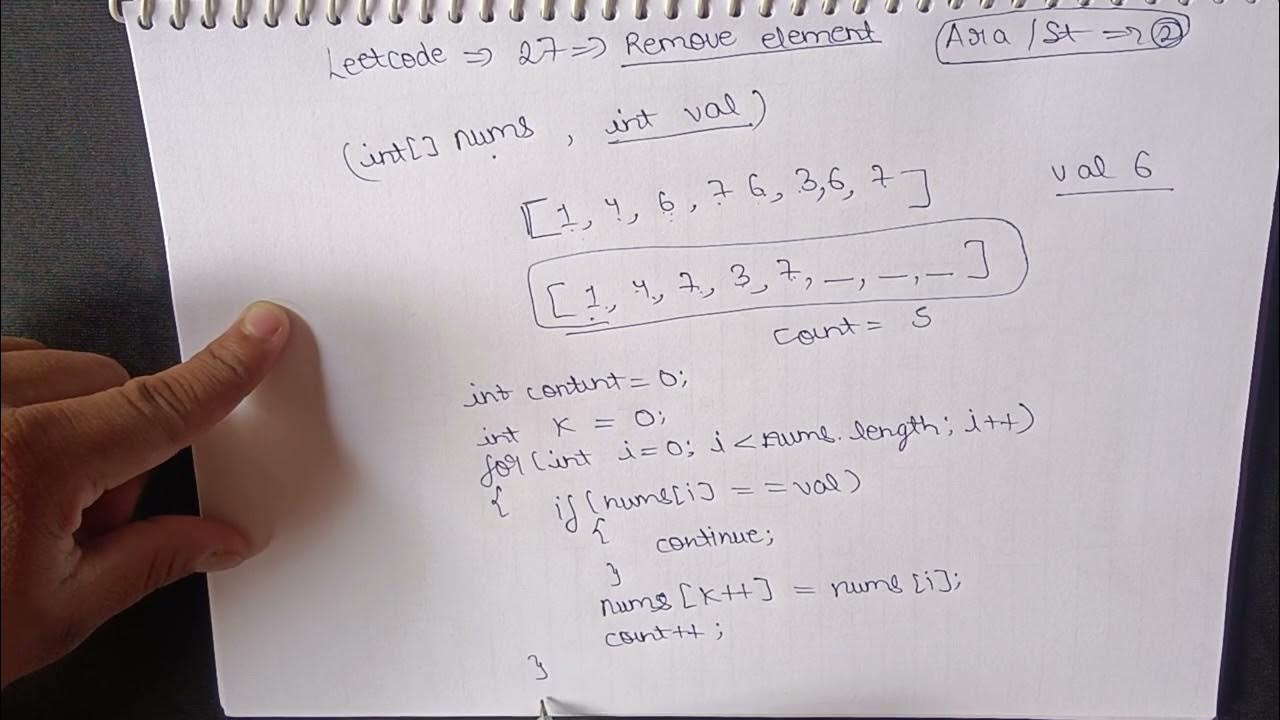 Leetcode => 27 => Remove element
Ara / St => 2
(int[] nums , int val)
[1, 4, 6, 7 6, 3,6, 7]
val 6
[1, 4, 7, 3, 7, _, _, _]
count = 5
int contint = 0;
int K = 0;
for(int i=0; i<nums.length; i++)
{ if(nums[i] == val)
{ continue;
}
nums[k++] = nums[i];
count++;
}